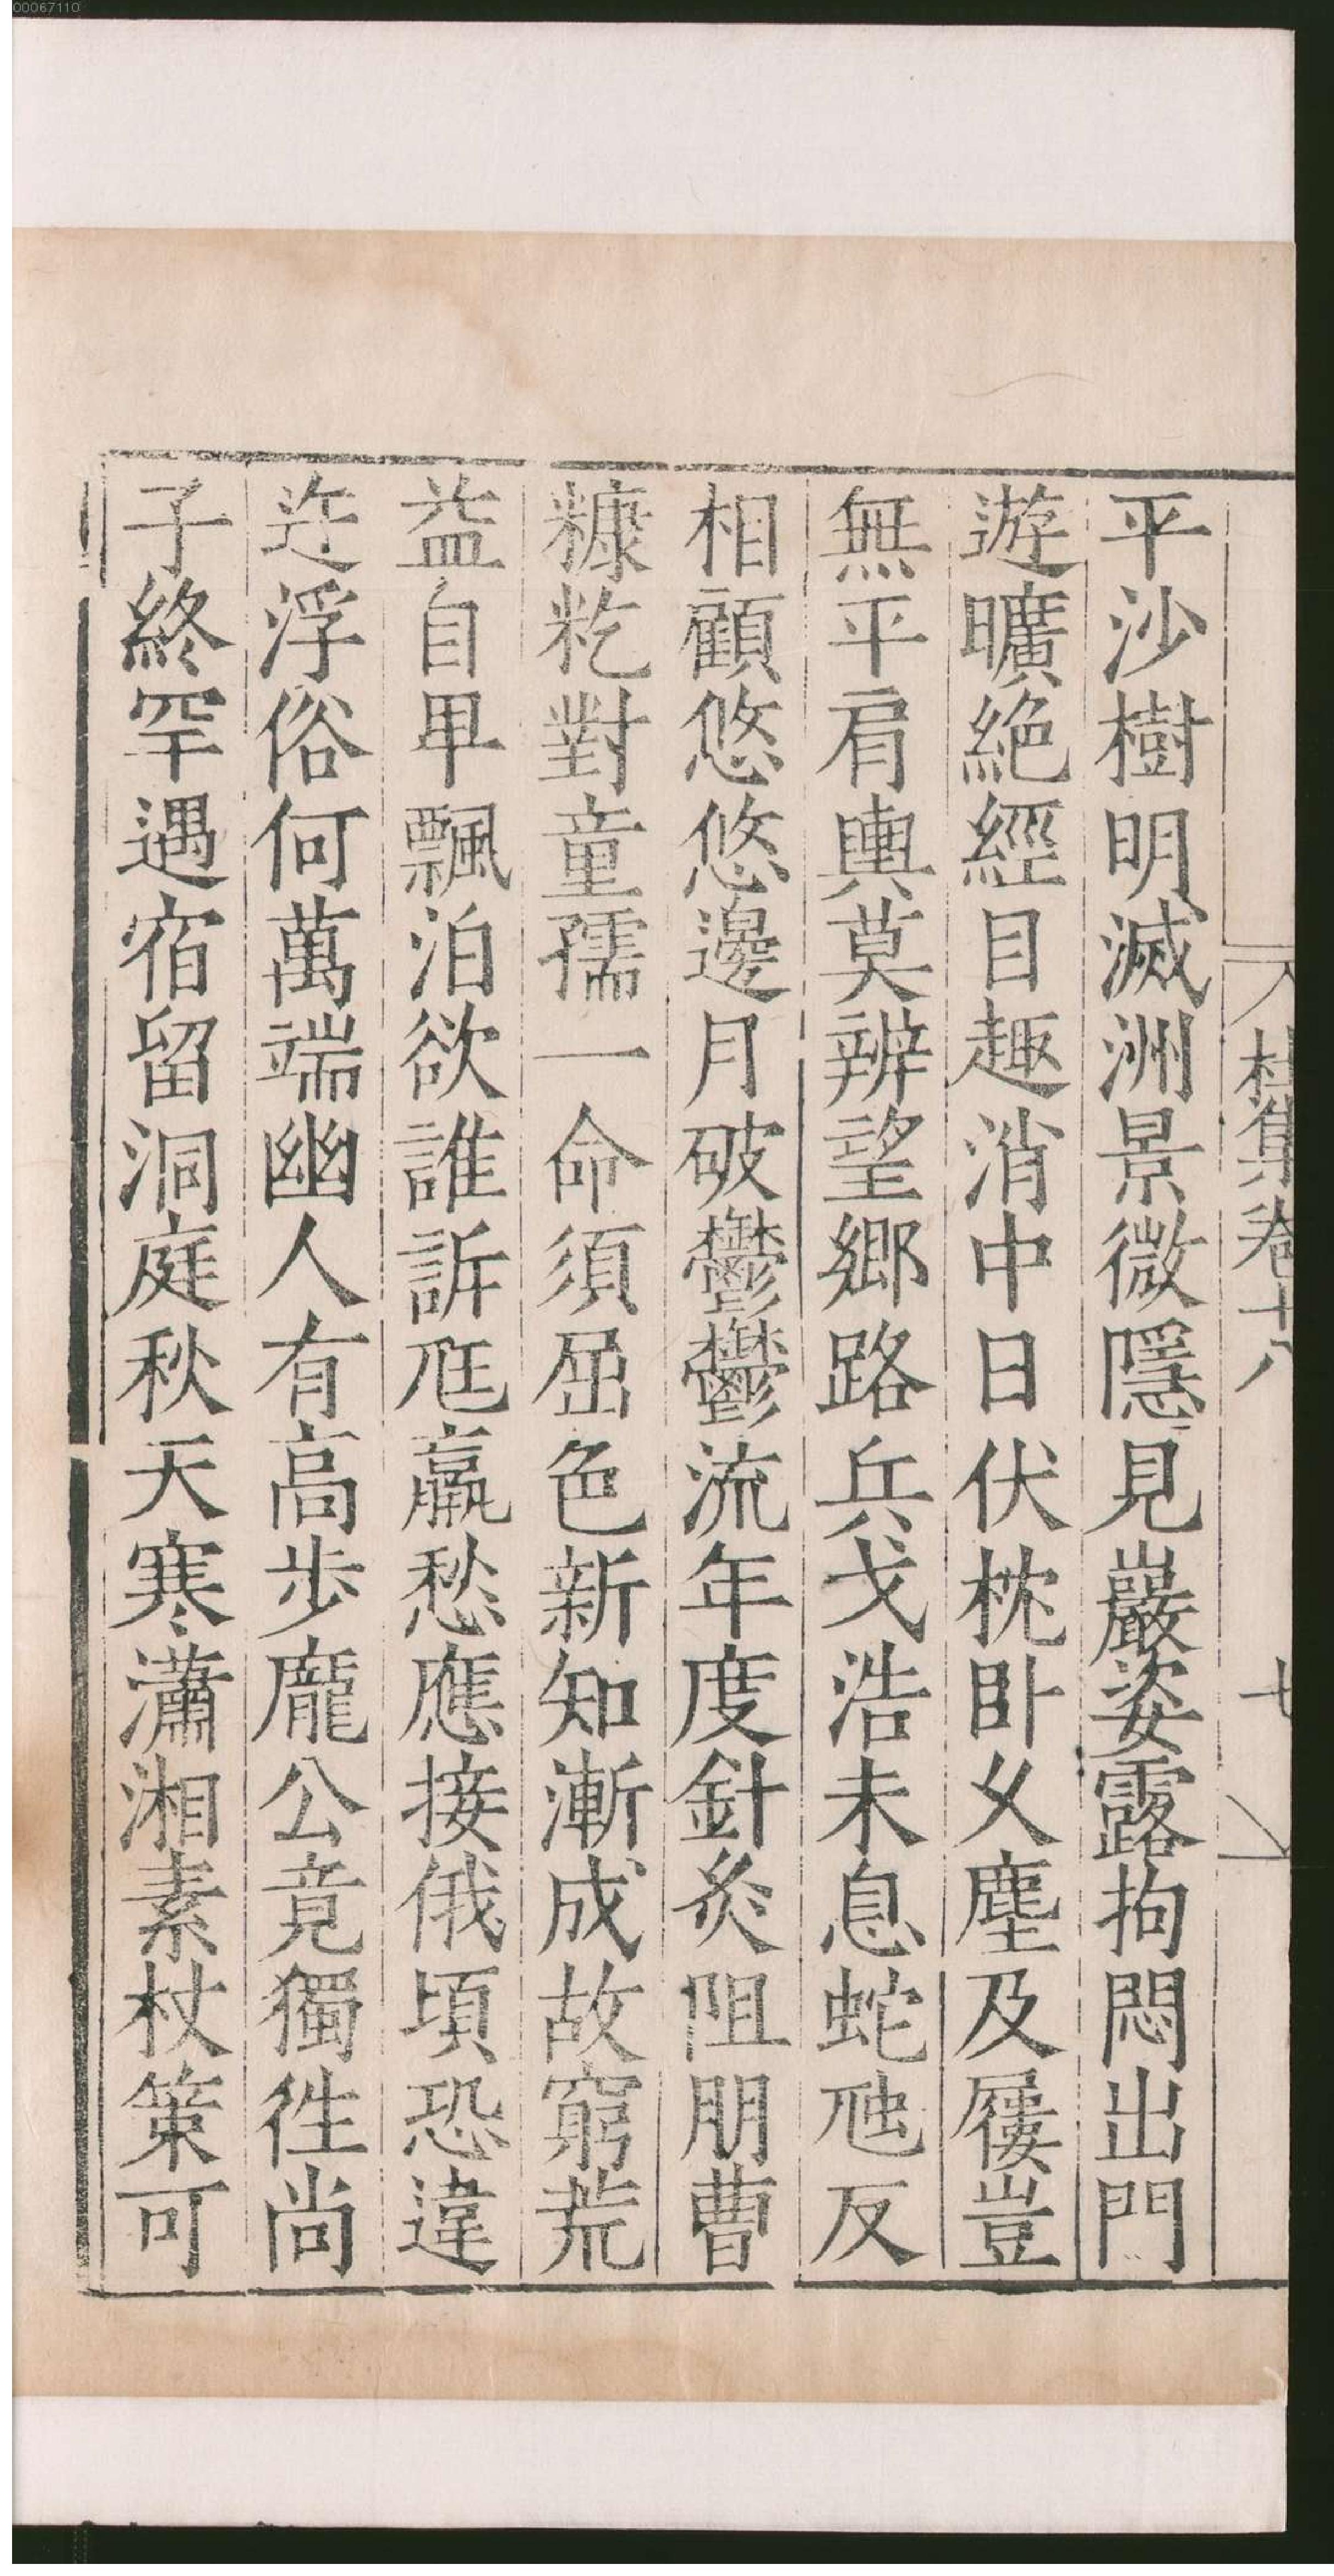 00067110
杜集卷十八
七
平沙樹明滅洲景微隱見巖姿露拘悶出門
遊曠絕經目趣消中日伏枕卧久塵及屨豈
無平肩輿莫辨望鄉路兵戈浩未息蛇虺反
相顧悠悠邊月破鬱鬱流年度針灸阻朋曹
糠籺對童孺一命須屈色新知漸成故窮荒
益自卑飄泊欲誰訴尫羸愁應接俄頃恐違
迕浮俗何萬端幽人有高步龐公竟獨往尚
子終罕遇宿留洞庭秋天寒瀟湘素杖策可